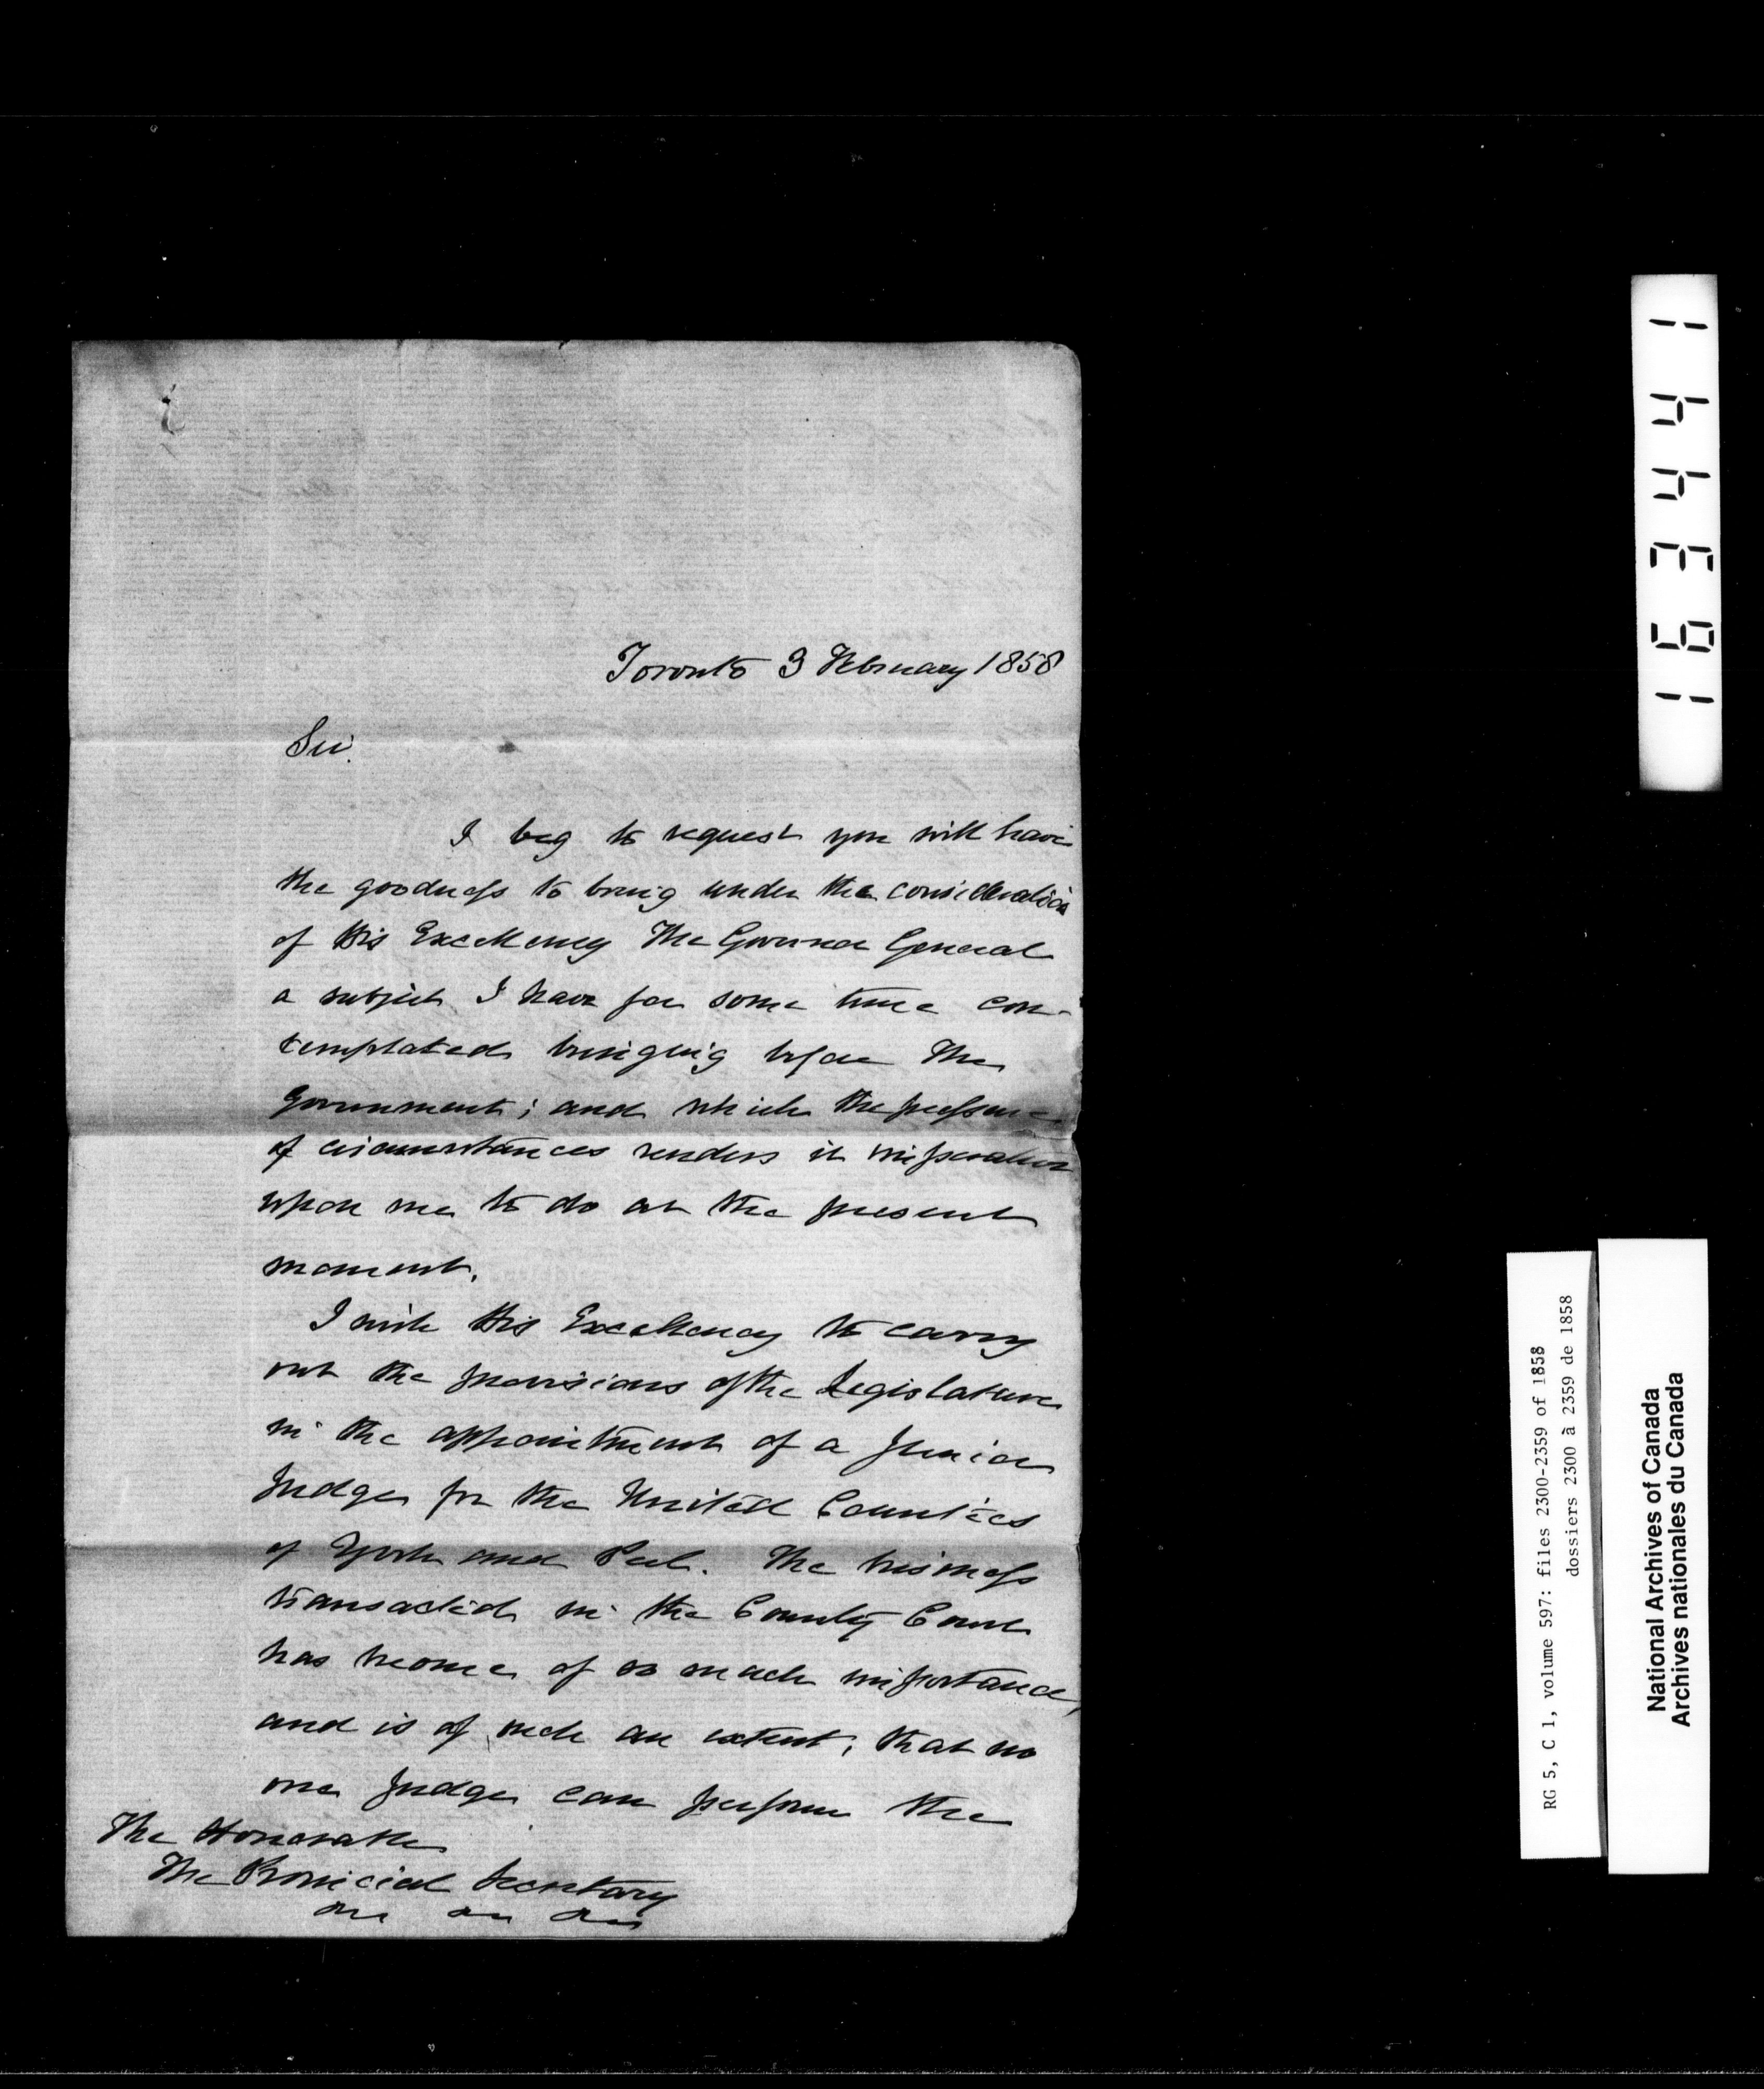 Toronto 3 February 1858
Sir.
I beg to request you will have
the goodness to bring under the consideration
of His Excellency The Governor General
a subject I have for some time con-
templated bringing before The
Government; and which the pressure
of circumstances renders it imperative
upon me to do at the present
moment.
I wish His Excellency to carry
out the provisions of the Legislature
in the appointment of a Junior
Judge for the United Counties
of York and Peel. The business
transacted in the County Court
has become of so much importance,
and is of such an extent, that no
one Judge can perform the
The Honorable
The Provincial Secretary
164441
RG 5, C 1, volume 597: files 2300-2359 of 1858
dossiers 2300 à 2359 de 1858
National Archives of Canada
Archives nationales du Canada